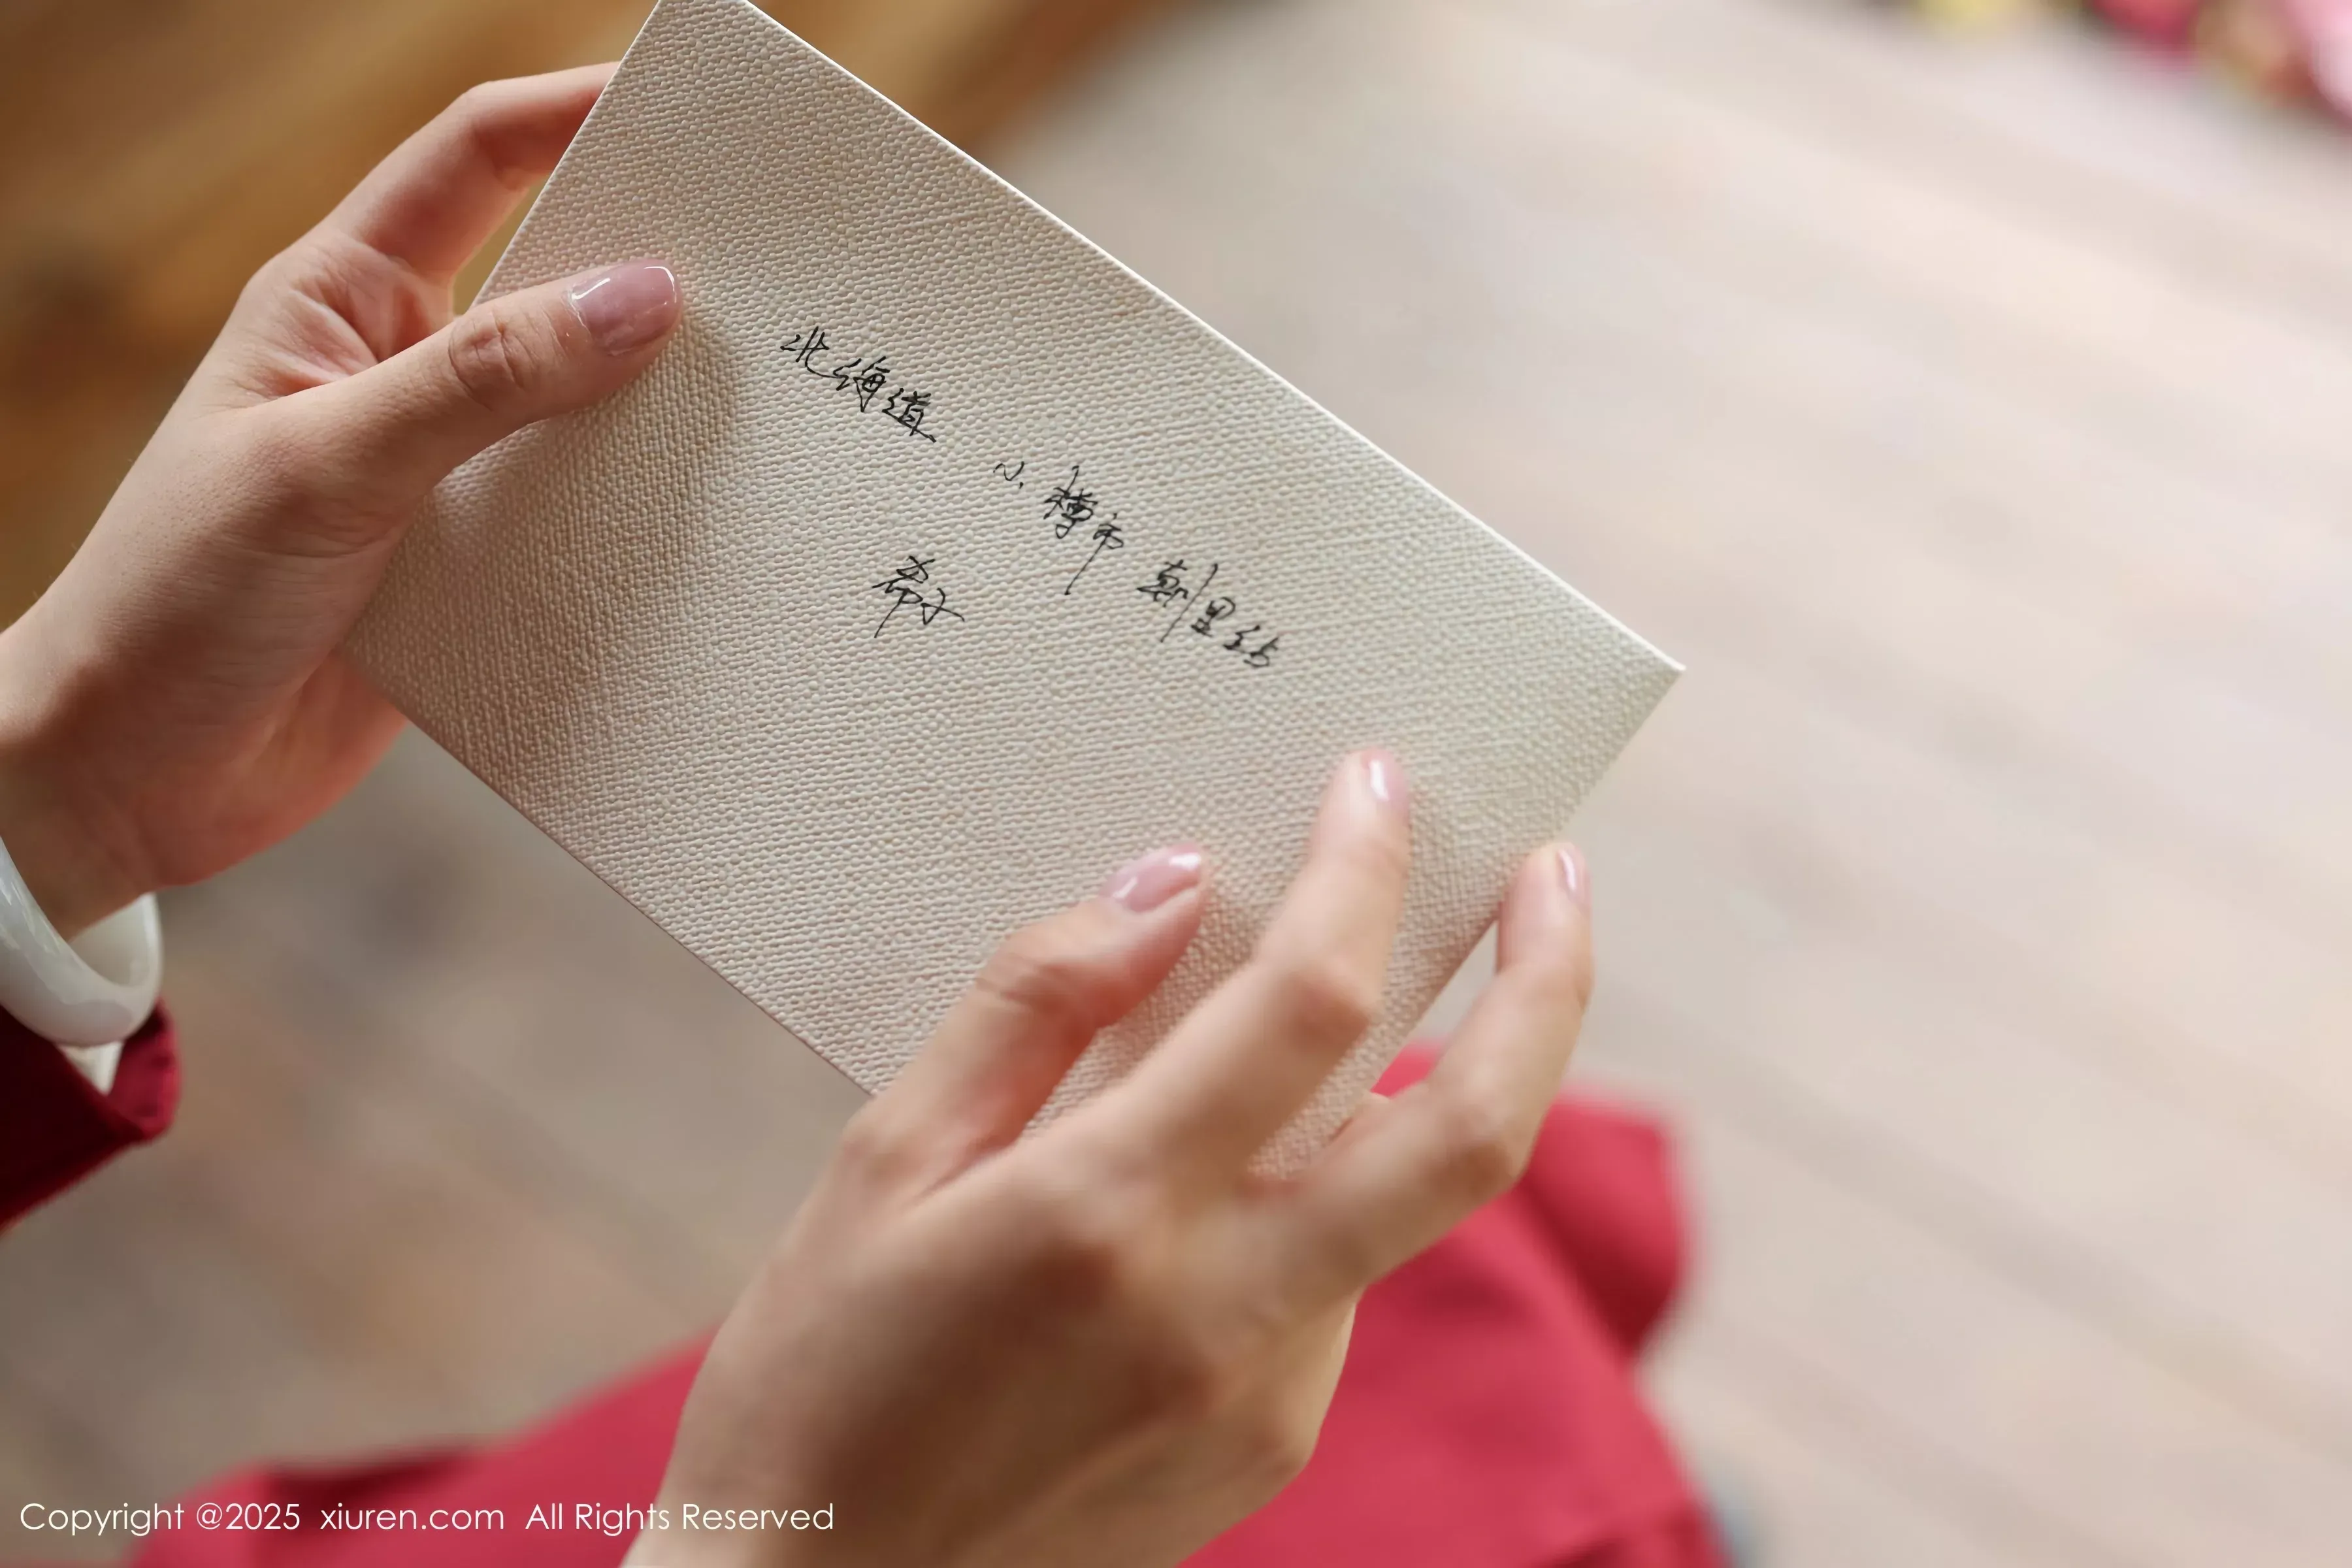 北海道 小樽市 朝里站
希子
Copyright @2025 xiuren.com All Rights Reserved